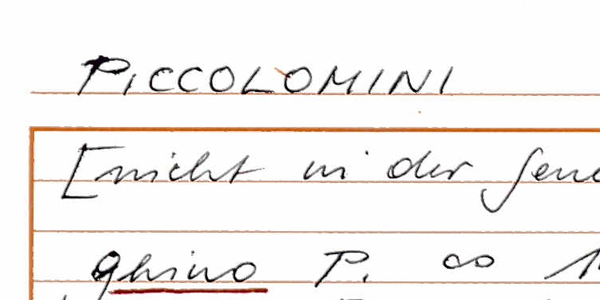 PICCOLOMINI
[nicht in der Gene
ghino P. ∞ 1